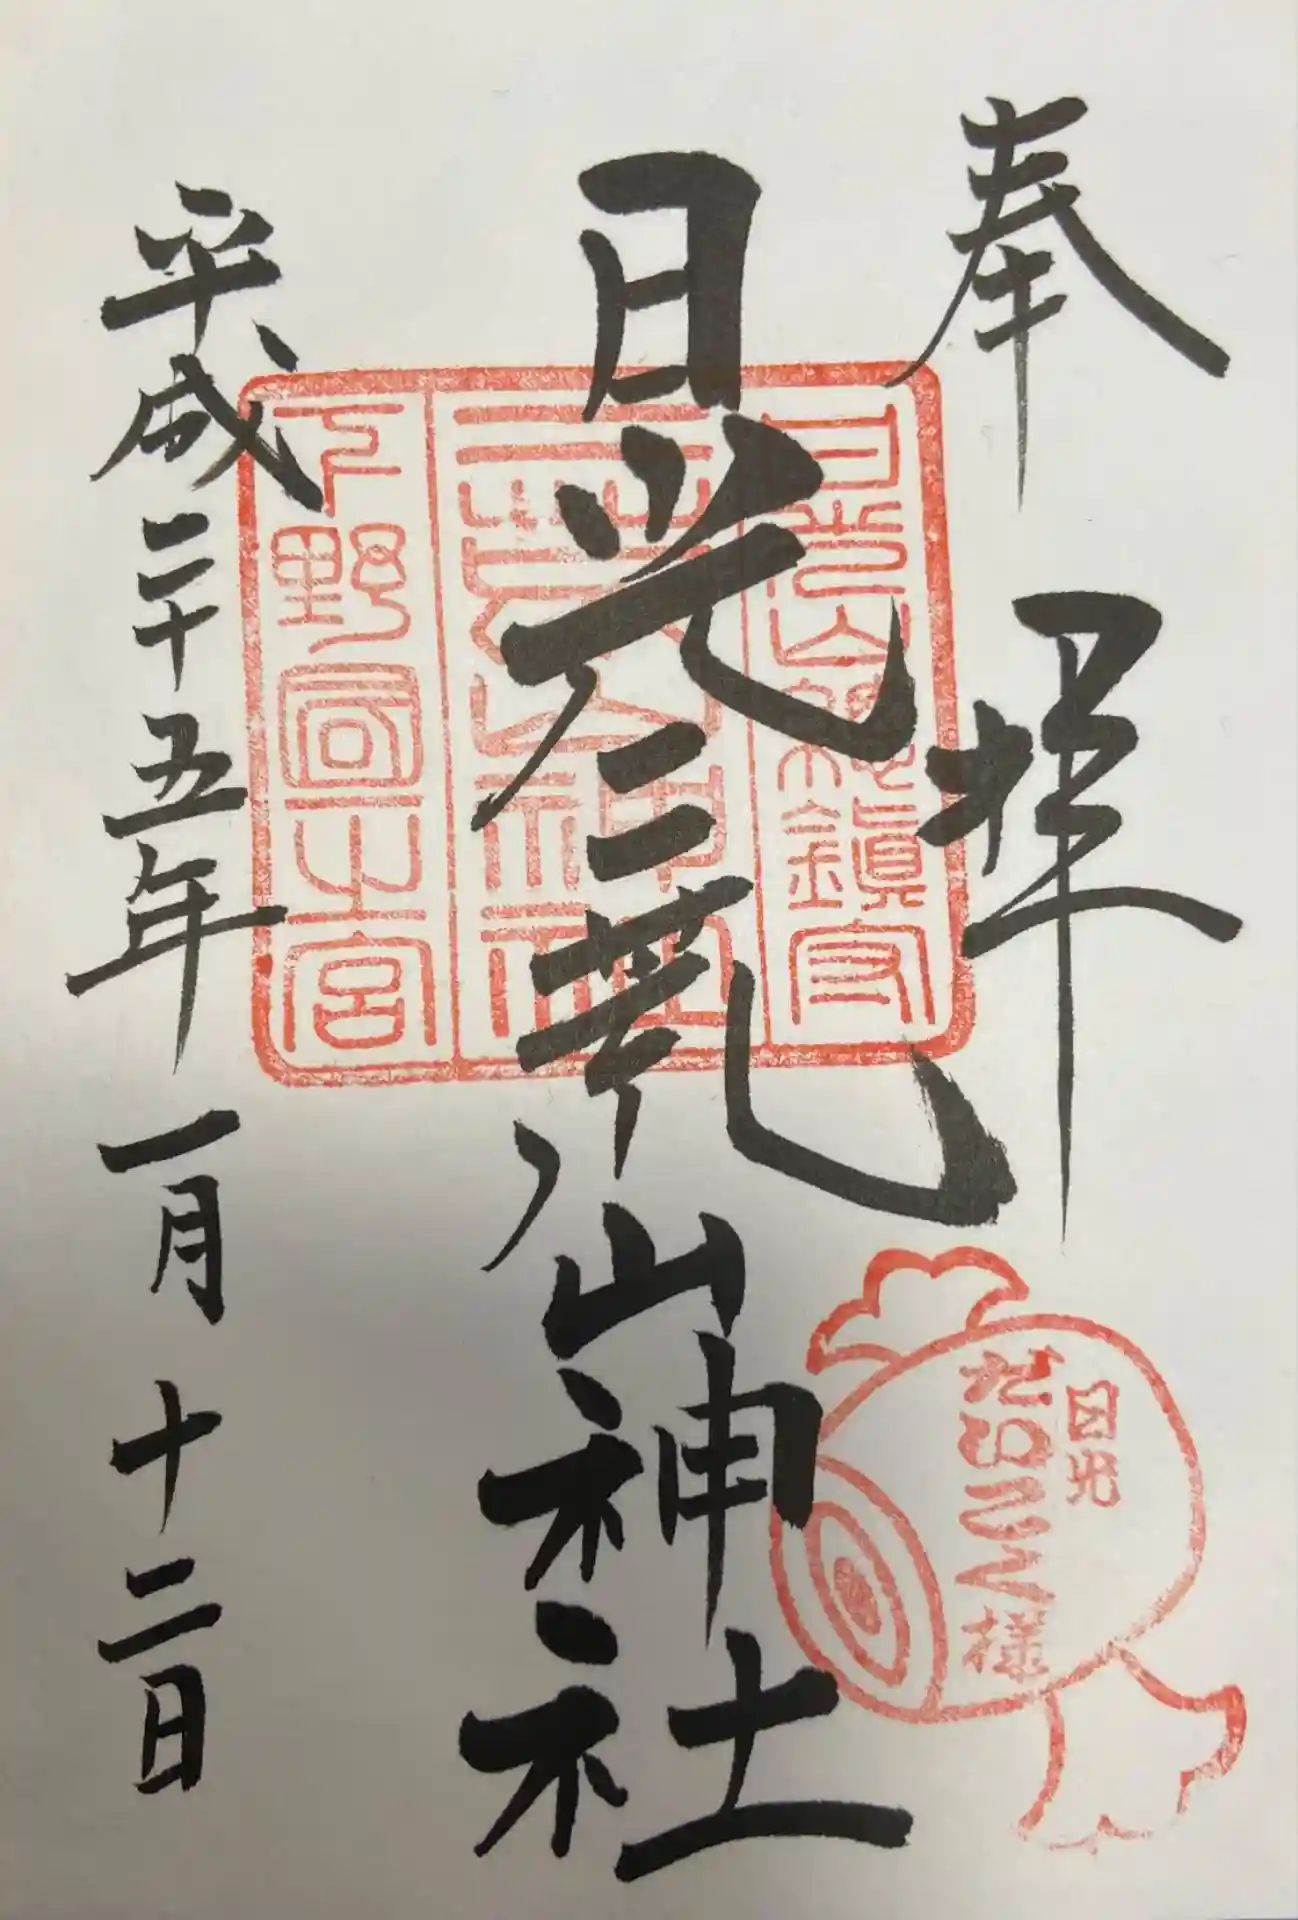 奉拝
日光二荒山神社
平成二十五年一月十二日
日光山総鎮守
二荒山神社
下野國一之宮
日光
だいこく様